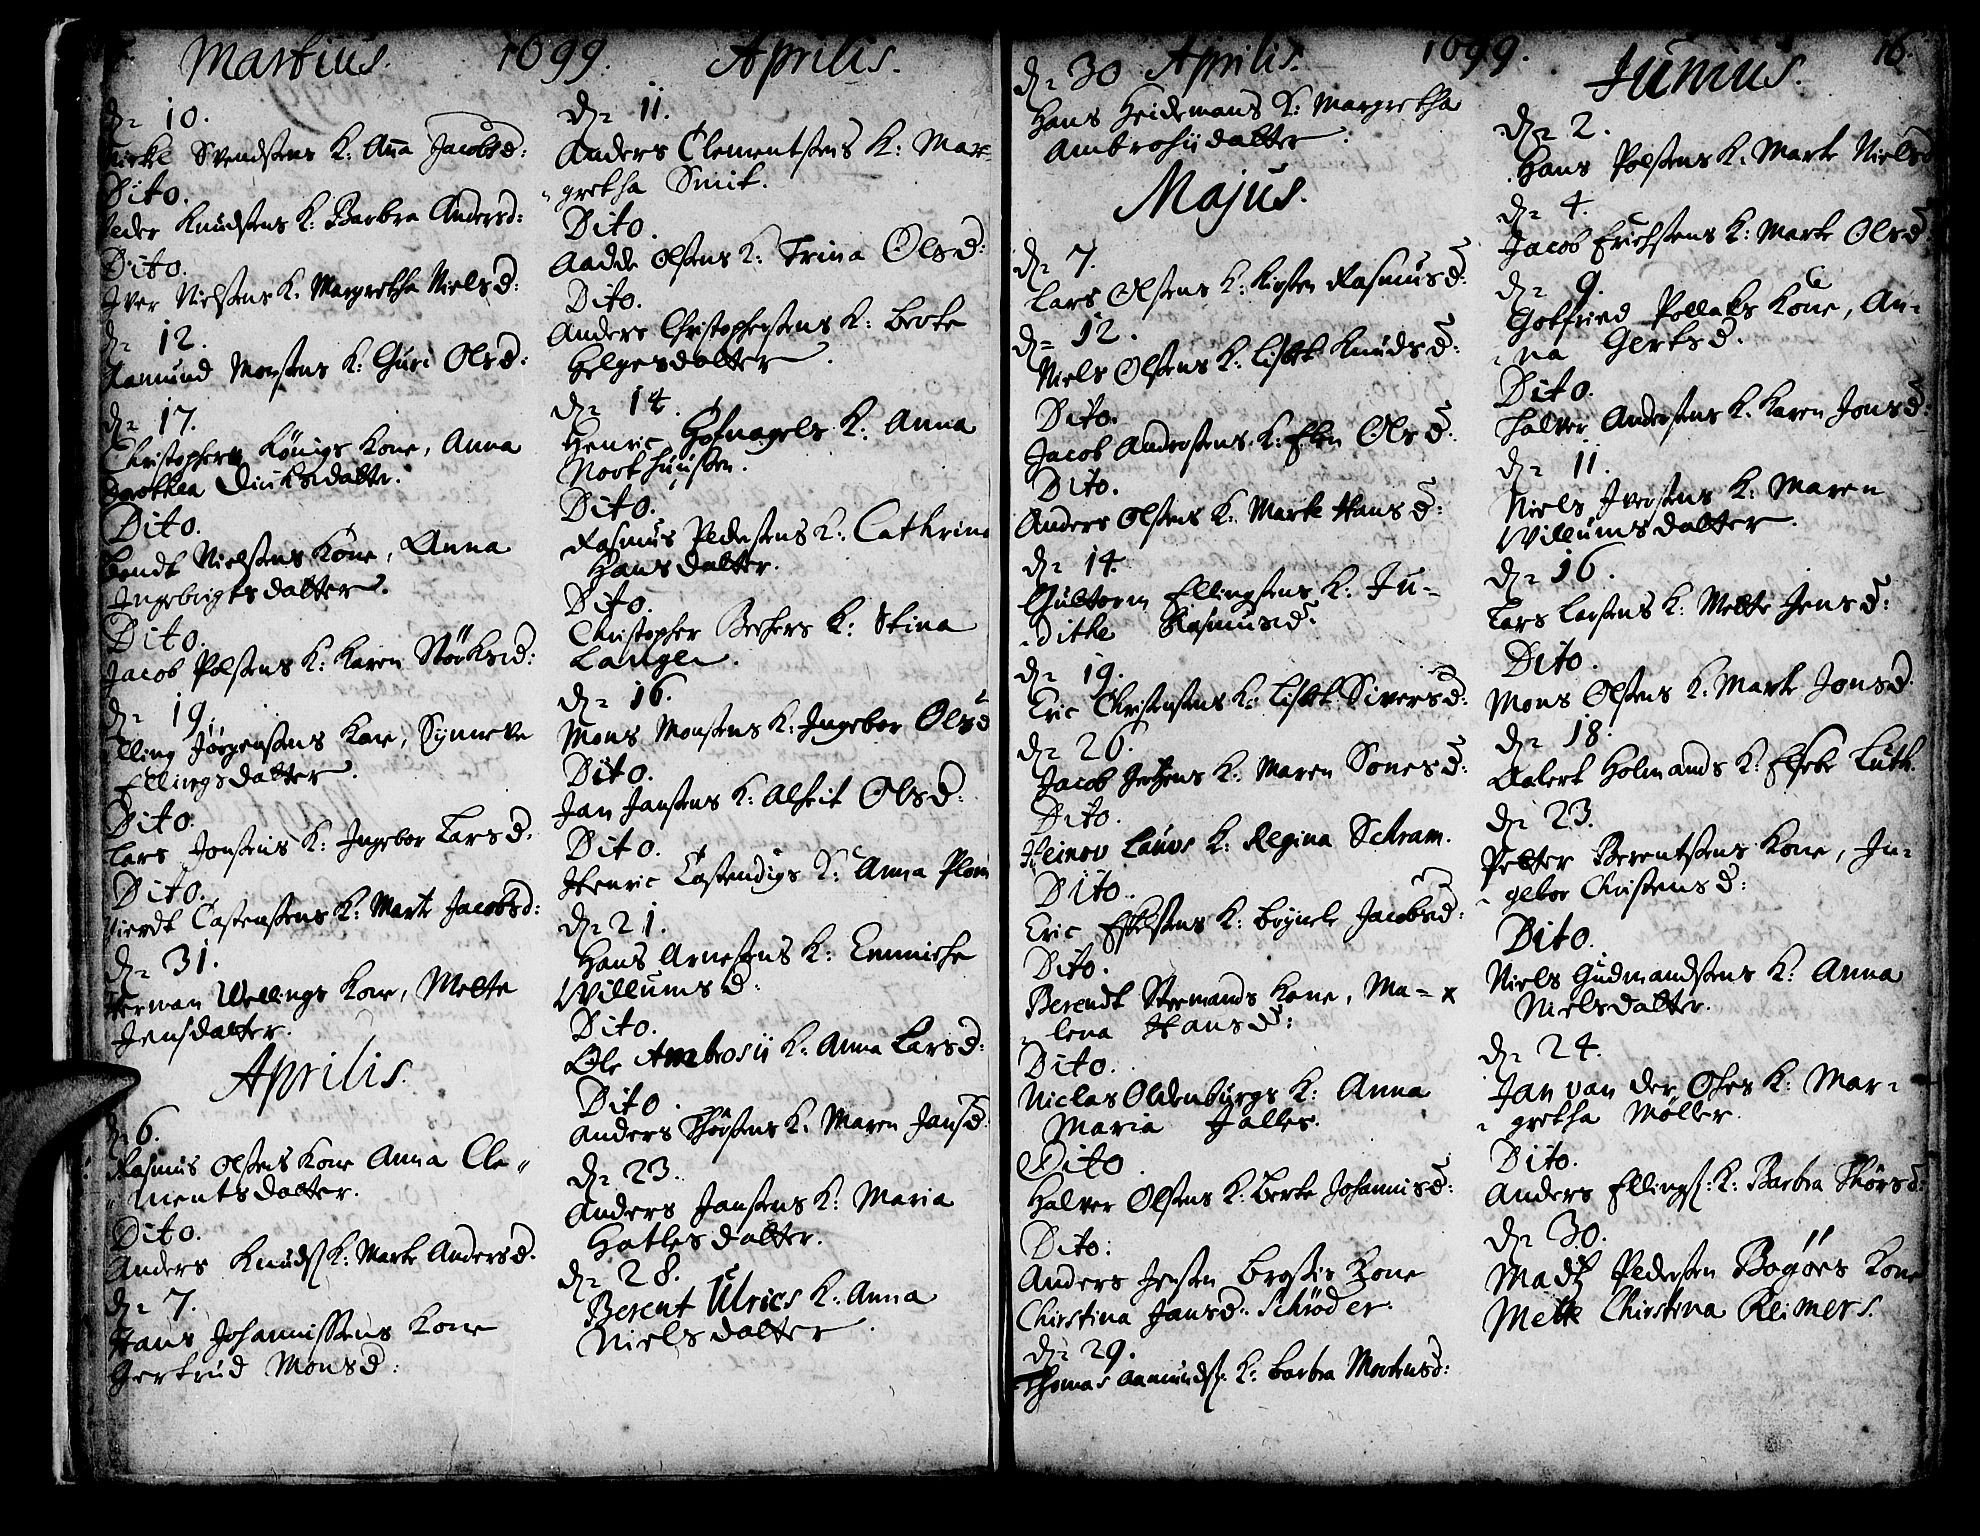 Martius. 1699. Aprilis.
dn 10.
Svendsens K: Anna Jacobsd:
Dito.
Peder Knudsens K: Barbra Andersd:
Dito.
Iver Nielsens K: Margretha Nielsd:
dn 12.
Aamund Monsens K: Guri Olsd:
dn 17.
Christophern Königs Kone, Anna
Dorothea Diriksdatter.
Dito.
Bendt Nielsens Kone, Anna
Ingebrigtsdatter.
Dito.
Jacob Polsens K: Karen Störksd:
dn 19.
Elling Jörgensens Kone, Synneve
Ellingsdatter.
Dito.
Lars Jonsens K: Ingebor Larsd:
Dito.
Castensens K: Marte Jacobsd:
dn 31.
Herman Wellings Kone, Mette
Jensdatter.
Aprilis.
dn 6.
Rasmus Olsens Kone Anna Cle„
„mentsdatter.
Dito.
Anders Knuds: K: Marte Andersd.
dn 7.
Hans Johannissens Kone
Gertrud Monsd:
dn 11.
Anders Clementsens K: Mar-
gretha Smit.
Dito.
Aadde Olsens K: Trina Olsd:
Dito.
Anders Christophersens K: Berte
Helgesdatter.
dn 14.
Henric Hofnagels K: Anna
Noothuusen.
Dito.
Rasmus Pedersens K: Cathrina
Hansdatter.
Dito.
Christopher Bechers K: Stina
Langen.
dn 16.
Mons Monsens K: Ingebor Olsd
Dito.
Jan Jansens K: Alheit Olsd:
Dito.
Henric Castendigs K: Anna
dn 21.
Hans Arnesens K: Emmiche
Willumsd:
Dito.
Ole Ambrosii K: Anna Larsd:
Dito.
Anders Thörsens K: Maren Jansd.
dn 23.
Anders Jansens K: Maria
Hatlesdatter.
dn 28.
Berent Ulrics K: Anna
Nielsdatter.
dn 30 Aprilis. 1699. Junius. 16.
Hans Heidemans K: Margretha
Ambrosiidatter.
Majus.
dn 7.
Lars Olsens K: Kirsten Rasmusd:
dn 12.
Niels Olsens K: Lisbet Knudsd:
Dito.
Jacob Andersens K: Elen Olsd:
Dito.
Anders Olsens K: Marte Hansd:
dn 14.
Gultorm Ellingsens K: Ju-
dithe Rasmusd:
dn 19.
Eric Christensens K: Lisbet Siversd:
dn 26.
Jacob K: Maren Sonesd:
Dito.
Heinov Lauvs K: Regina Schram.
Dito.
Eric Eskelsens K: Jacobsd:
Dito.
Berendt Steemands Kone, Ma- x
lena Hansd:
Dito.
Niclas Oldenburgs K: Anna
Maria Jalles.
Dito
Halver Olsens K: Berte Johannisd:
Dito:
Anders Jensen Kone
Christina Jansd: Schröder.
dn 29.
Thomas Aamunds: K: Barbra Mortensd:
dn 2.
Hans Polsens K: Marte Nielsd
dn 4.
Jacob Erichsens K: Marte Olsd.
dn 9.
Gotfried Pollaks Kone, An-
na Gertsd.
Dito.
Halver Andersens K: Karen Jonsd:
dn 11.
Niels Iversens K: Maren
Willumsdatter.
dn 16.
Lars Larsens K: Mette Jensd:
Dito.
Mons Olsens K: Marte Jonsd.
dn 18.
Aalert Holmands K: Elsebe Luth.
dn 23.
Petter Berentsens Kone, In-
gebor Christensd:
Dito.
Niels Gudmandsens K: Anna
Nielsdatter.
dn 24.
Jan van der Ohes K: Mar-
gretha Möller.
Dito.
Anders Ellings: K: Barbra Thörsd.
dn 30.
Madtz Pedersen Bogöes Kone
Mette Christina Reimers.